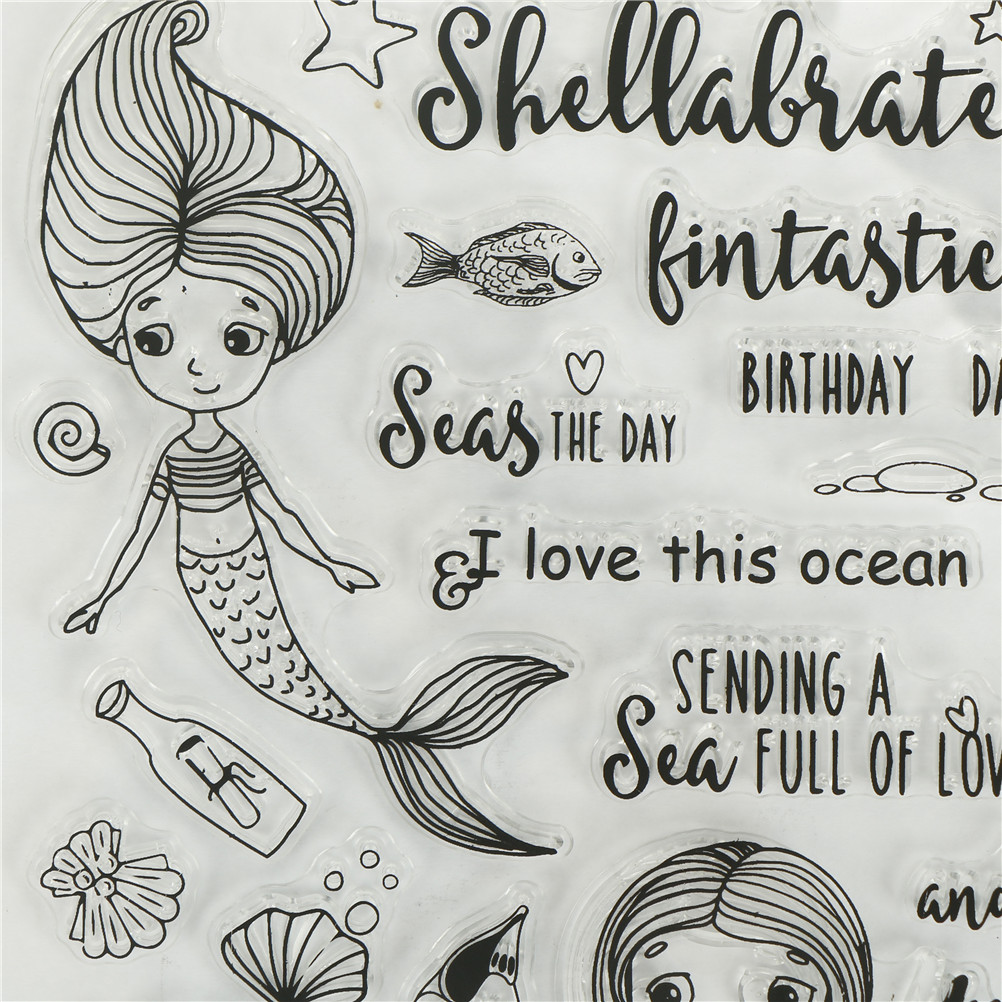 Shellabrate
fintastic
BIRTHDAY DA
Seas THE DAY
& I love this ocean
SENDING A
Sea FULL OF LOV
and